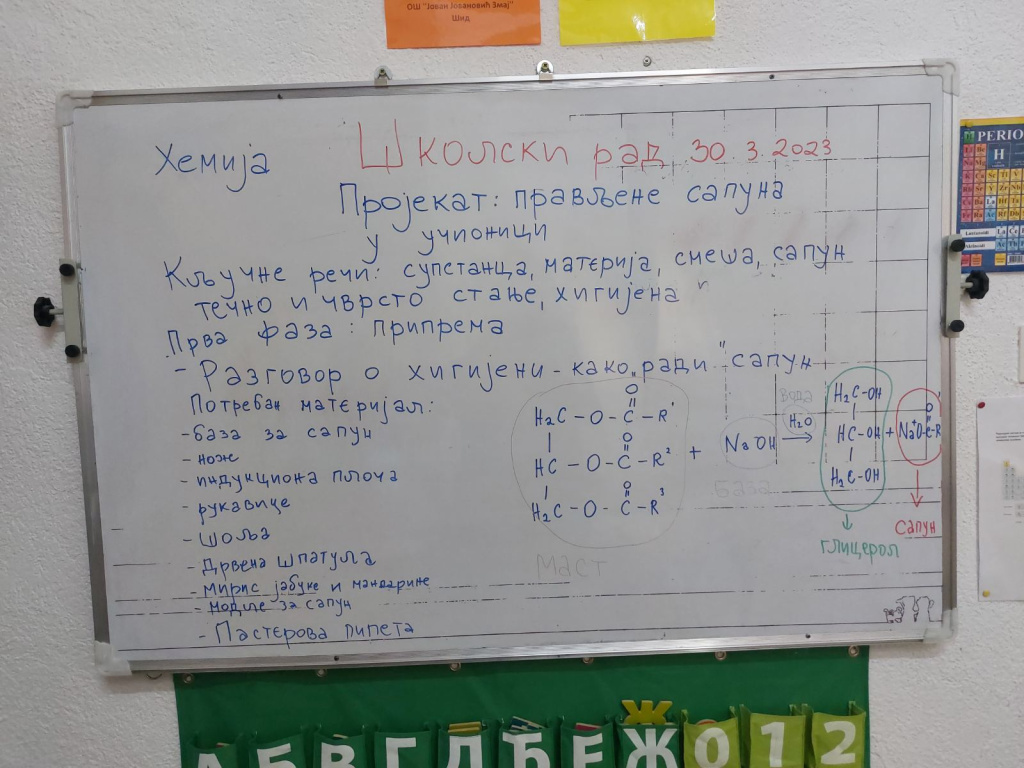 ОШ "Јован Јовановић Змај"
Шид
Хемија
Школски рад 30.3.2023
Пројекат: прављене сапуна
у учионици
Кључне речи: супстанца, материја, смеша, сапун
течно и чврсто стање, хигијена
Прва фаза: припрема
- Разговор о хигијени - како "ради" сапун
Потребан материјал:
- база за сапун
- нож
- индукциона плоча
- рукавице
- шоља
- Дрвена шпатула
- мирис јабуке и мандарине
- модле за сапун
- Пастерова пипета
O
H₂C - O - C - R¹
O
HC - O - C - R²
O
H₂C - O - C - R³
маст
+
NaOH
база
вода
H₂O
H₂C-OH
HC-OH
H₂C-OH
глицерол
+
O
Na⁺O-C-R
сапун
PERIO
H
А Б В Г Д Ђ Е Ж 0 1 2
Ж